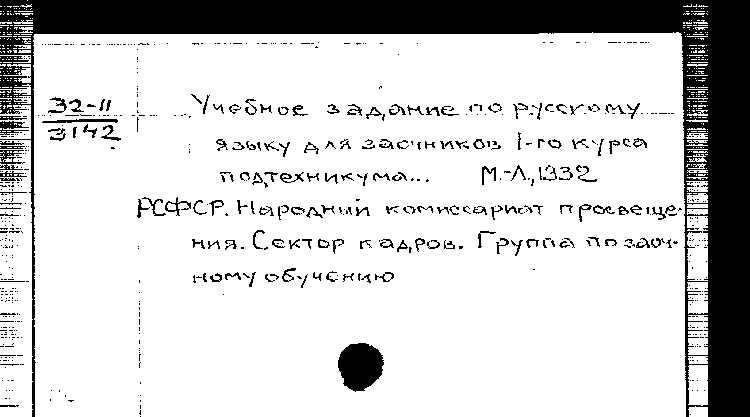 32-11
3142
Учебное задание по русскому
языку для заочников 1-го курса
подтехникума... М.-Л., 1932
РСФСР. Народный комиссариат просвеще-
ния. Сектор кадров. Группа по заоч-
ному обучению